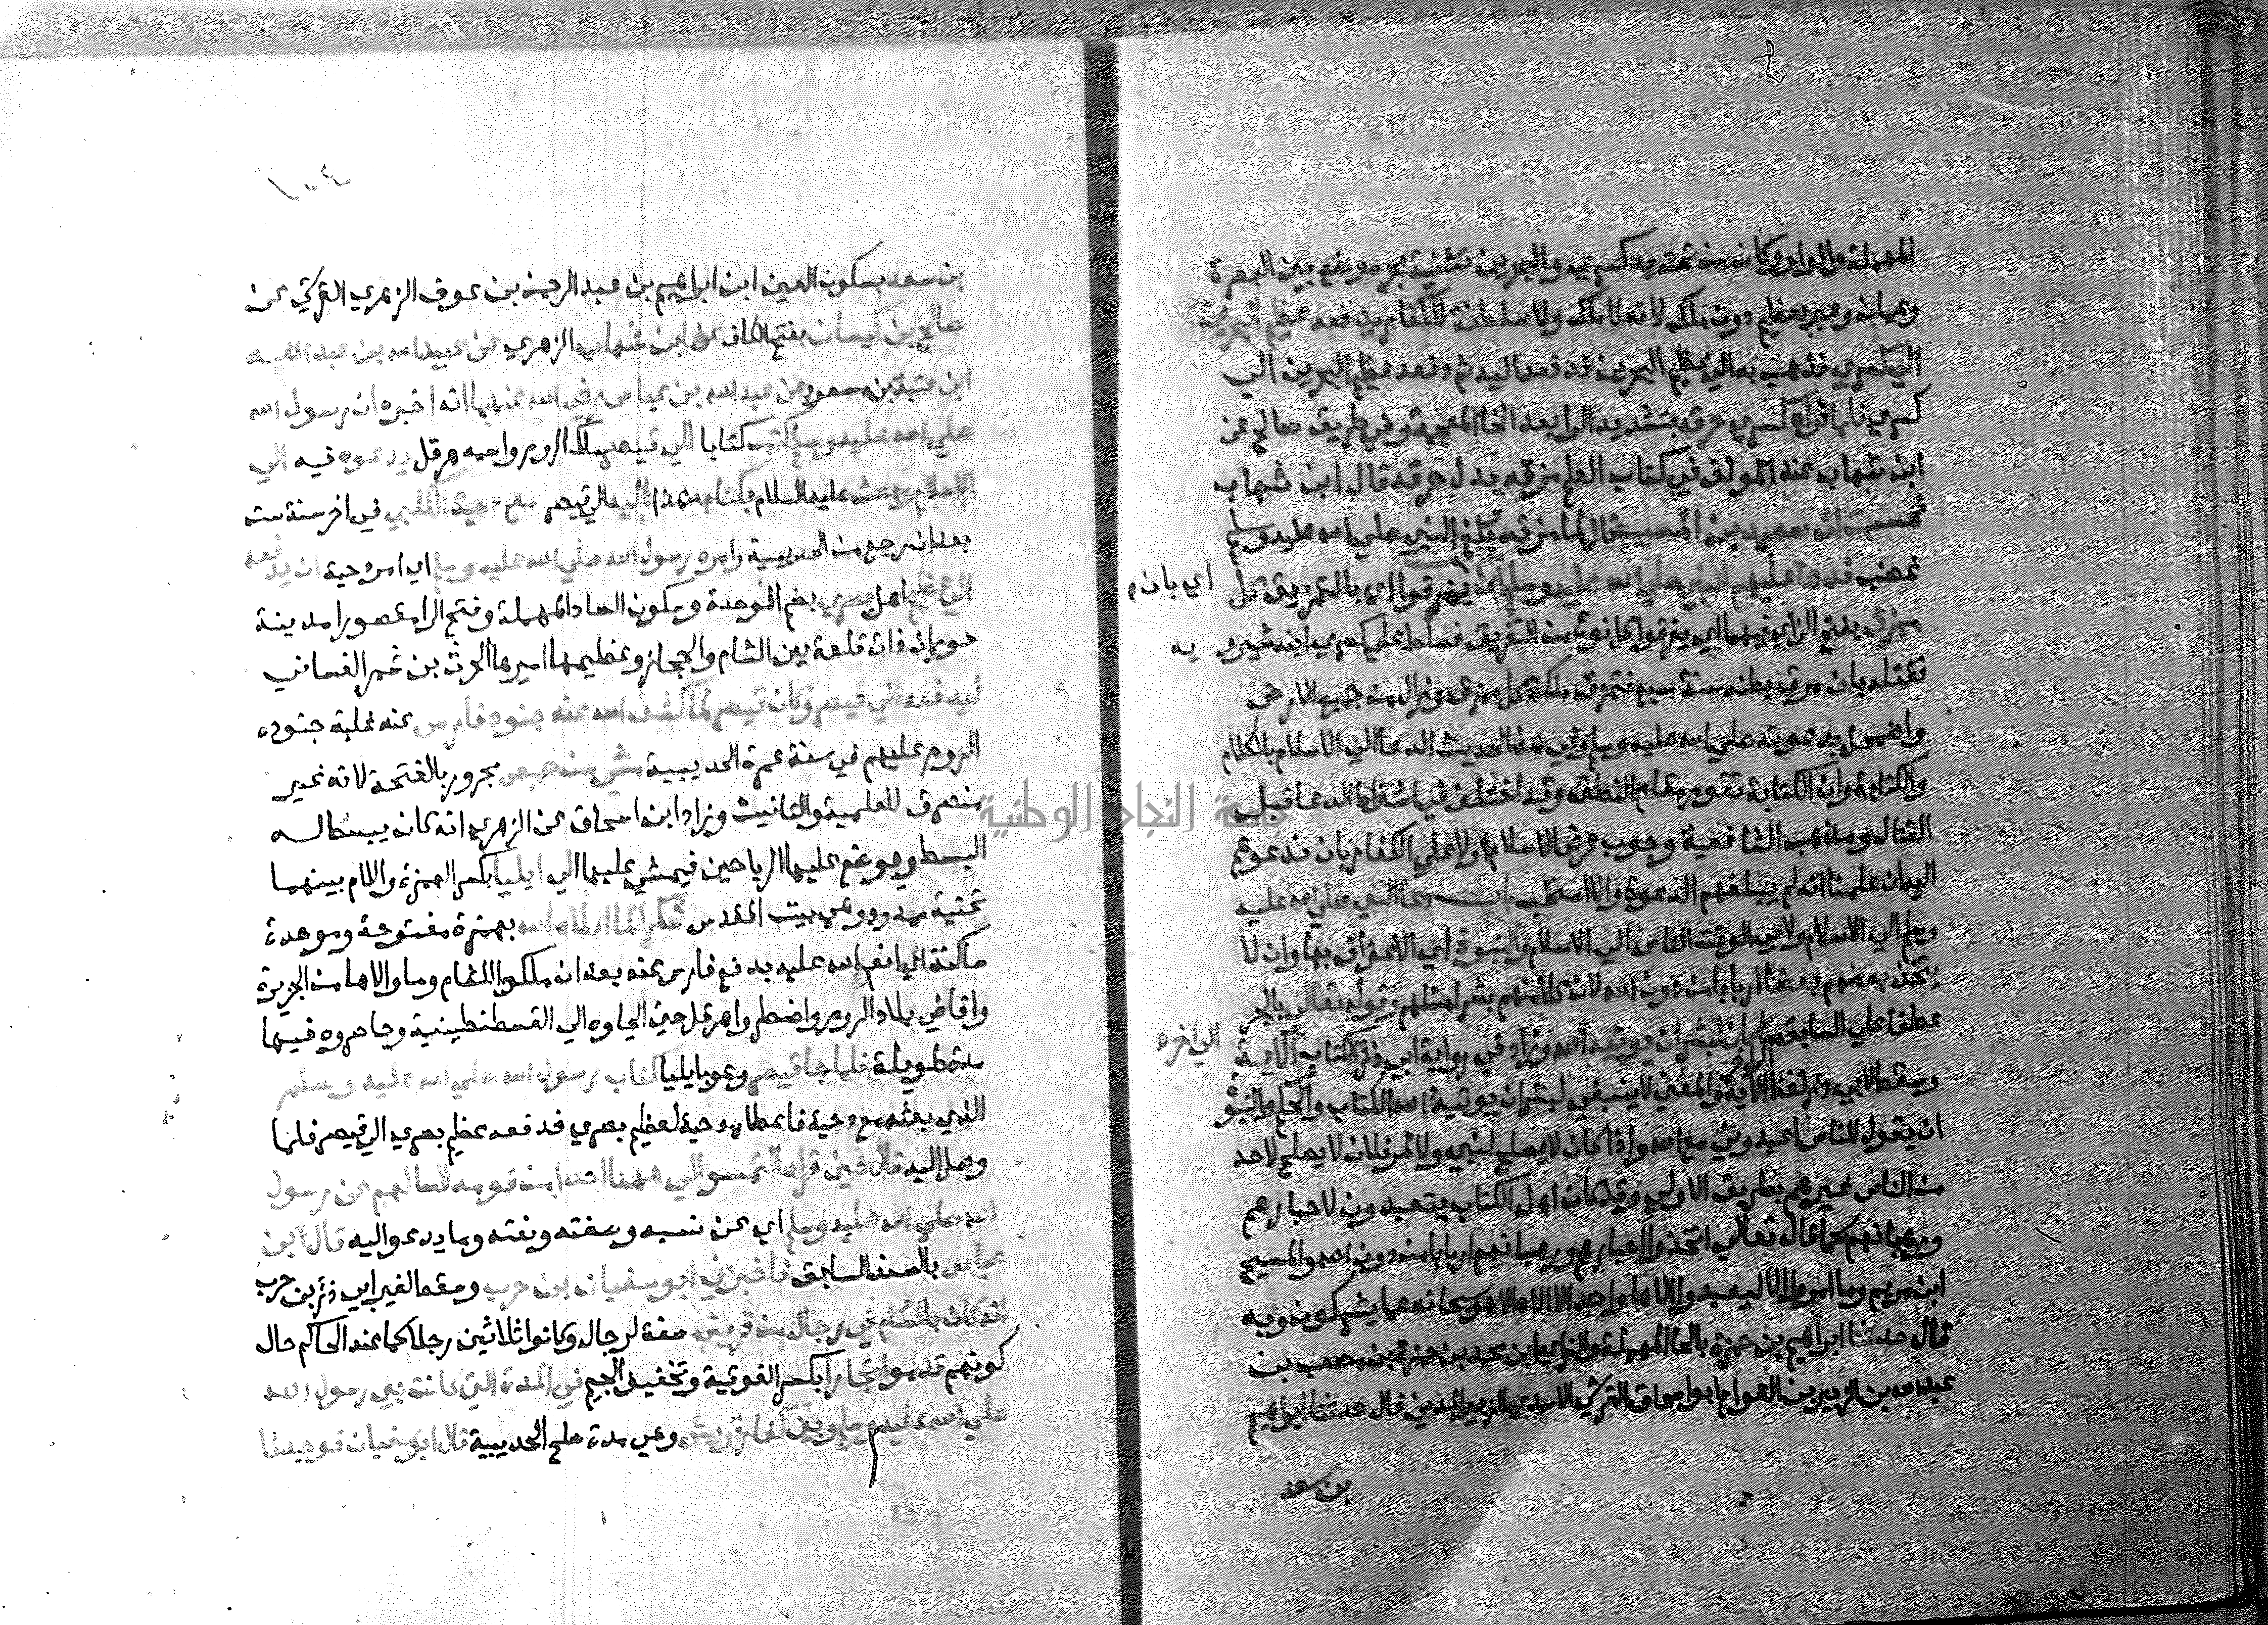 المهملة والواو وكان من تحت يد كسري والبحرين تثنية بحر موضع بين البصرة
وعمان وعبر بعظيم دون ملك لانه لا ملك ولا سلطنة للكفار يدفعه عظيم البحرين
الي كسري فذهب به الي عظيم البحرين فدفعه اليه ثم دفعه عظيم البحرين الي
كسري فلما قراه كسري خرقه بتشديد الرا بعد الخا المعجمة وفي طريق صالح عن
ابن شهاب عند المولف في كتاب العلم مزقه بدل خرقه قال ابن شهاب
فحسبت ان سعيد بن المسيب قال لما مزقه بلغ النبي صلي الله عليه وسلم
فغضب فدعا عليهم النبي صلي الله عليه وسلم ان يمزقوا اي بالتمزيق كل
اي بان
ممزق بفتح الزاي فيهما اي يفرقوا كل نوع من التفريق فسلط علي كسري ابنه شيرويه
فقتله بان مزق بطنه سنة سبع فتمزق ملكه كل ممزق وزال من جميع الارض
واضمحل بدعوته صلي الله عليه وسلم وفي هذا الحديث الدعا الي الاسلام بالكلام
والكتابة وان الكتابة تقوم مقام النطق وقد اختلف في اشتراط الدعا قبل
القتال ومذهب الشافعية وجوب عرض الاسلام اولا علي الكفار بان ندعوهم
اليه ان علمنا انه لم يبلغهم الدعوة والا استحب باب دعا النبي صلي الله عليه
وسلم الي الاسلام ولابي الوقت الناس الي الاسلام والنبوة اي الاعتراف بها وان لا
يتخذ بعضهم بعضا اربابا من دون الله لان كلا منهم بشر مثلهم وقوله تعالي بالجر
عطفا علي السابق ما كان لبشر ان يوتيه الله وزاد في رواية ابي ذر الكتاب الاية
الي اخره
وسقط لابي ذر لفظ الاية والمعني لا ينبغي لبشر ان يوتيه الله الكتاب والحكم والنبوة
ان يقول للناس اعبدوني مع الله واذا كان لا يصلح لنبي ولا لمرسل فلان لا يصلح لاحد
من الناس غيرهم بطريق الاولي وقد كان اهل الكتاب يتعبدون لاحبارهم
ورهبانهم كما قال تعالي اتخذوا احبارهم ورهبانهم اربابا من دون الله والمسيح
ابن مريم وما امروا الا ليعبدوا الاها واحدا لا اله الا هو سبحانه عما يشركون وبه
قال حدثنا ابراهيم بن حمزة بالحا المهملة والزاي ابن محمد بن حمزة بن مصعب بن
عبد الله بن الزبير بن العوام ابو اسحاق القرشي الاسدي الزبيري المدني قال حدثنا ابراهيم
بن سعد
بن سعد بسكون العين ابن ابراهيم بن عبد الرحمن بن عوف الزهري القرشي عن
صالح بن كيسان بفتح الكاف عن ابن شهاب الزهري عن عبيد الله بن عبد الله
ابن عتبة بن مسعود عن عبد الله بن عباس رضي الله عنهما انه اخبره ان رسول الله
صلي الله عليه وسلم كتب كتابا الي قيصر ملك الروم واسمه هرقل يدعوه فيه الي
الاسلام وبعث عليه السلام بكتابه هذا اليه الي قيصر مع دحية الكلبي في اخر سنة ست
بعد ان رجع من الحديبية وامره رسول الله صلي الله عليه وسلم اي امر دحية ان يدفعه
الي عظيم اهل بصري بضم الموحدة وسكون الصاد المهملة وفتح الرا مقصورا مدينة
حوران ذات قلعة بين الشام والحجاز وعظيمها اميرها الحرث بن شمر الغساني
ليدفعه الي قيصر وكان قيصر لما كشف الله عنه جنود فارس عند غلبة جنوده
الروم عليهم في سنة عمرة الحديبية مشي من حمص مجرور بالفتحة لانه غير
منصرف للعلمية والتانيث وزاد ابن اسحاق عن الزهري انه كان يبسط له
البسط ويوضع عليها الرياحين فيمشي عليها الي ايليا بكسر الهمزة واللام بينهما
تحتية ممدود وهي بيت المقدس شكرا لما ابلاه الله بهمزة مفتوحة وموحدة
ساكنة اي انعم الله عليه بدفع فارس عنه بعد ان ملكوا الشام وما والاها من الجزيرة
واقاصي بلاد الروم واضطر واهرقل حتي الجاوه الي القسطنطينية وحاصروه فيها
مدة طويلة فلما جا قيصر وهو بايليا كتاب رسول الله صلي الله عليه وسلم
الذي بعثه مع دحية فاعطاه دحية لعظيم بصري فدفعه عظيم بصري الي قيصر فلما
وصل اليه قال حين قراه التمسوا لي ههنا احدا من قومه لاسالهم عن رسول
الله صلي الله عليه وسلم اي عن نسبه وصفته ونعته وما يدعوا اليه قال ابن
عباس بالسند السابق فاخبرني ابو سفيان بن حرب وسقط لغير ابي ذر بن حرب
انه كان بالشام في رجال من قريش صفة لرجال وكانوا ثلاثين رجلا كما عند الحاكم حال
كونهم قدموا تجارا بكسر الفوقية وتخفيف الجيم في المدة التي كانت بين رسول الله
صلي الله عليه وسلم وبين كفار قريش وهي مدة صلح الحديبية قال ابو سفيان فوجدنا
جامعة النجاح الوطنية